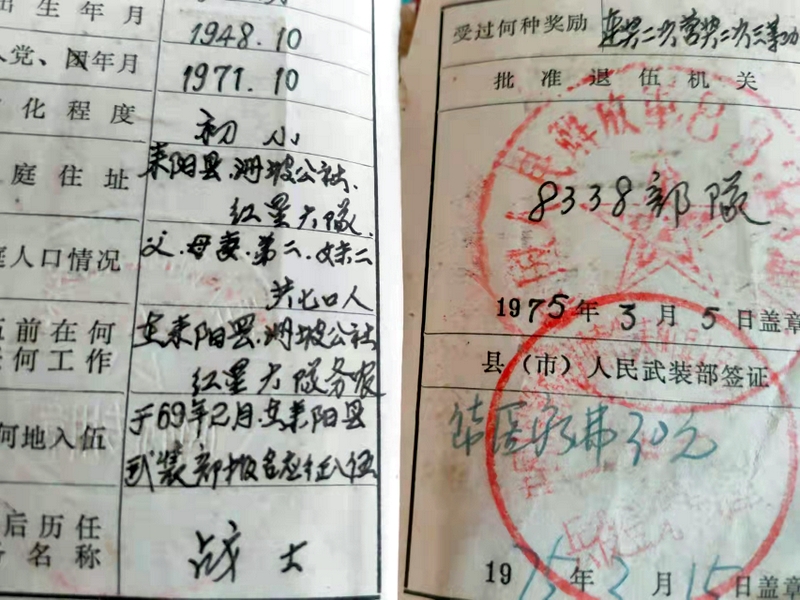 出生年月
1948.10
入党、团年月
1971.10
化程度
初小
庭住址
耒阳县.洲坡公社.
红星大队.
庭人口情况
父.母妻.弟二.妹二
共七口人
伍前在何
何工作
在耒阳县.洲坡公社
红星大队务农
何地入伍
于69年2月在耒阳县
武装部报名应征入伍
后历任
名称
战士
受过何种奖励
连奖二次营奖二次三等功
批准退伍机关
民解放军
8338部队
1975年3月5日盖章
县（市）人民武装部签证
30元
1975年3月15日盖章